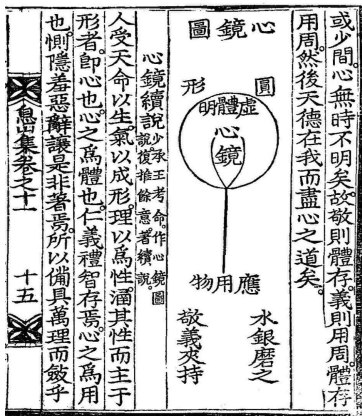 或少間心無時不明矣故敬則體存義則用周體存
用周然後天德在我而盡心之道矣
心鏡圖
圓形
虛體明
心鏡
應用物
水銀磨之
敬義夾持
心鏡續說少承王考命作心鏡圖說復推餘意著續說
人受天命以生氣以成形理以爲性涵其性而主于
形者即心也心之爲體也仁義禮智存焉心之爲用
也惻隱羞惡辭讓是非著焉所以備具萬理而敏乎
息山集卷之十一
十五